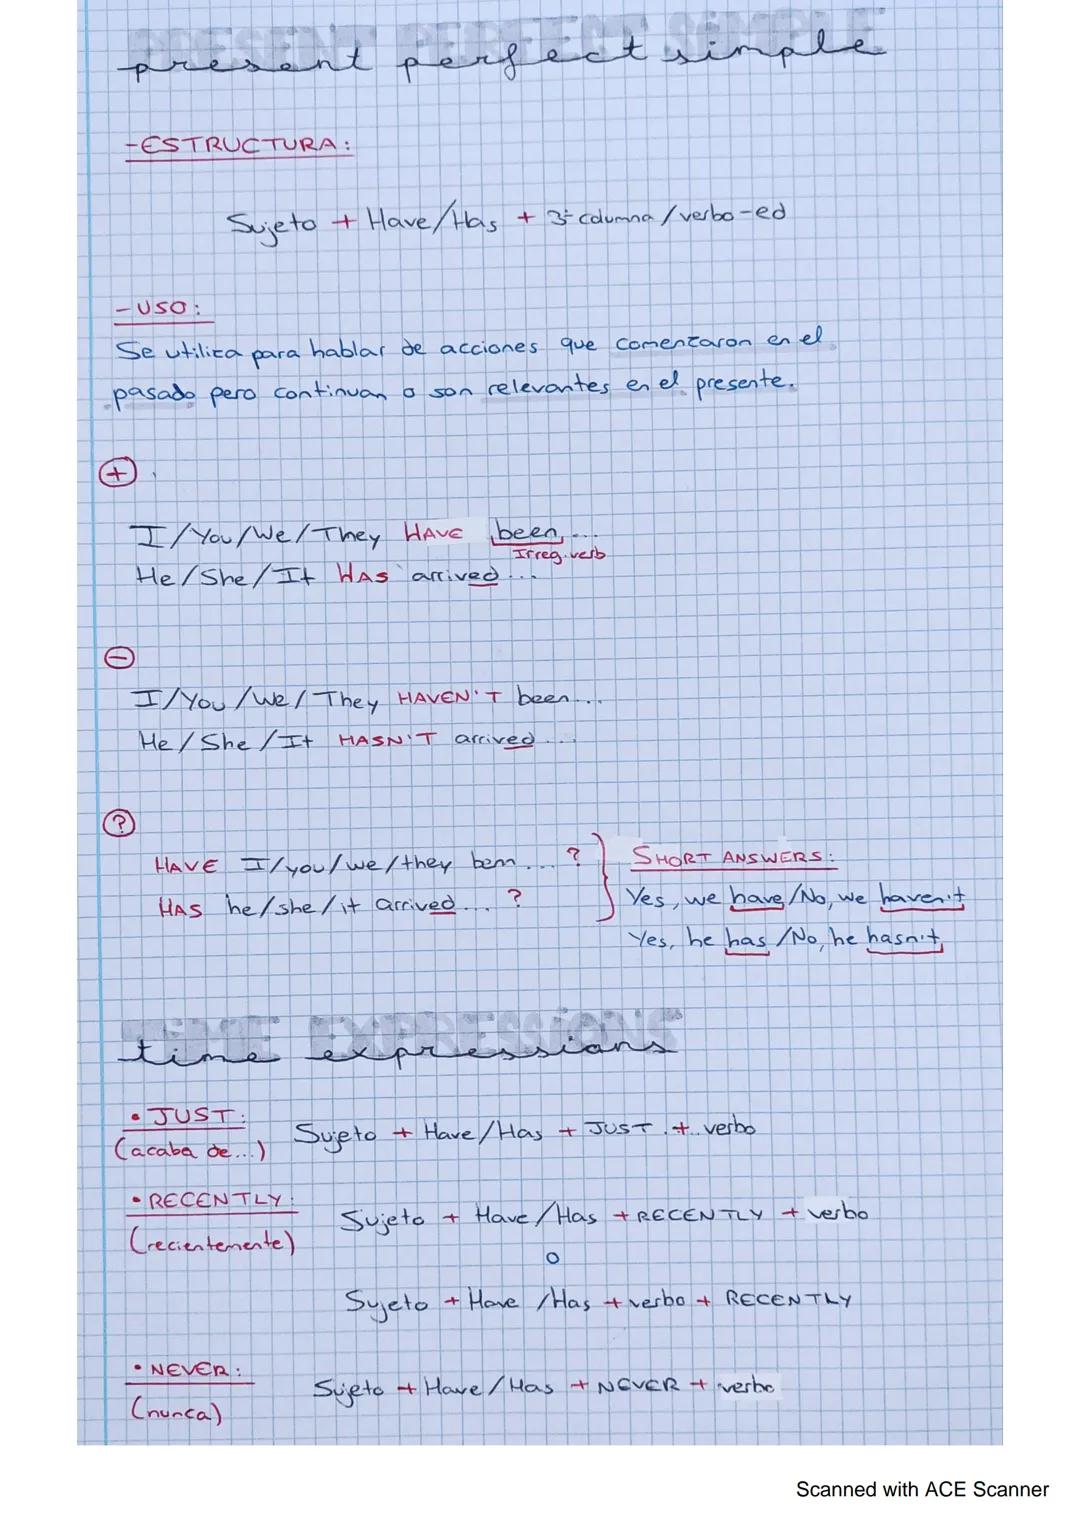 PRESENT PERFECT SIMPLE
present perfect simple
-ESTRUCTURA:
Sujeto + Have/Has + 3ª columna / verbo-ed
-USO:
Se utiliza para hablar de acciones que comenzaron en el
pasado pero continuan o son relevantes en el presente.
+
I/You/We/They HAVE been...
Irreg. verb
He/She/It HAS arrived...
-
I/You/We/They HAVEN'T been...
He/She/It HASN'T arrived...
?
HAVE I/you/we/they been...?
HAS he/she/it arrived...?
SHORT ANSWERS:
Yes, we have/No, we haven't
Yes, he has/No, he hasn't
TIME EXPRESSIONS
time expressions
• JUST:
(acaba de...)
Sujeto + Have/Has + JUST + verbo
• RECENTLY:
(recientemente)
Sujeto + Have/Has + RECENTLY + verbo
o
Sujeto + Have/Has + verbo + RECENTLY
• NEVER:
(nunca)
Sujeto + Have/Has + NEVER + verbo
Scanned with ACE Scanner